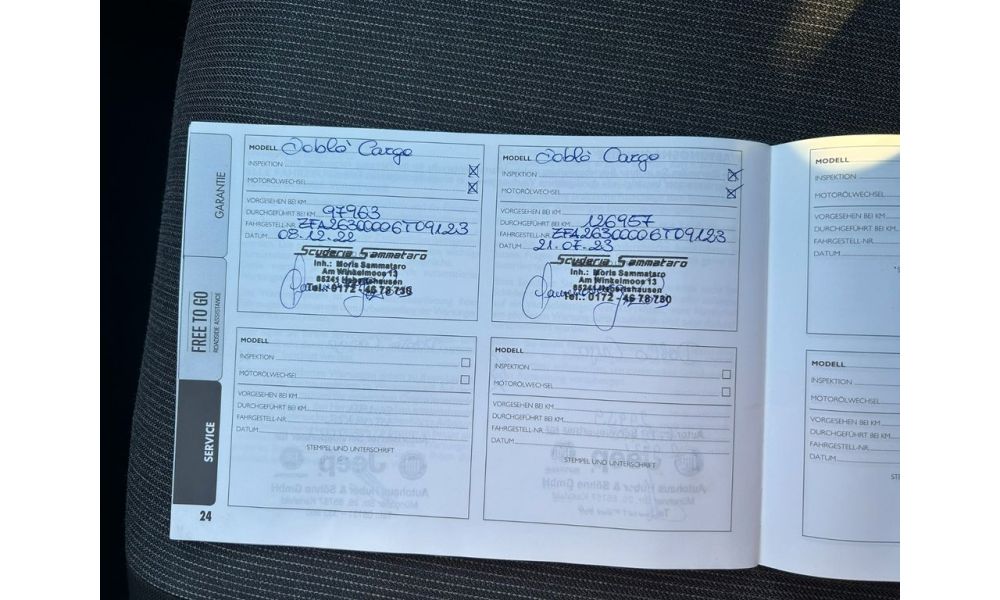 GARANTIE
FREE TO GO
ROADSIDE ASSISTANCE
SERVICE
24
MODELL Doblo' Cargo
INSPEKTION
MOTORÖLWECHSEL
VORGESEHEN BEI KM
DURCHGEFÜHRT BEI KM 97963
FAHRGESTELL-NR. ZFA26300006T09123
DATUM 08.12.22
Scuderia Sammataro
Inh.: Moris Sammataro
Am Winkelmoos 13
85241 Hebertshausen
Tel.: 0172 - 46 78 730
MODELL Doblo' Cargo
INSPEKTION
MOTORÖLWECHSEL
VORGESEHEN BEI KM
DURCHGEFÜHRT BEI KM 126957
FAHRGESTELL-NR. ZFA26300006T09123
DATUM 21.07.23
Scuderia Sammataro
Inh.: Moris Sammataro
Am Winkelmoos 13
85241 Hebertshausen
Tel.: 0172 - 46 78 730
MODELL
INSPEKTION
MOTORÖLWECHSEL
VORGESEHEN BEI KM
DURCHGEFÜHRT BEI KM
FAHRGESTELL-NR.
DATUM
MODELL
INSPEKTION
MOTORÖLWECHSEL
VORGESEHEN BEI KM
DURCHGEFÜHRT BEI KM
FAHRGESTELL-NR.
DATUM
STEMPEL UND UNTERSCHRIFT
MODELL
INSPEKTION
MOTORÖLWECHSEL
VORGESEHEN BEI KM
DURCHGEFÜHRT BEI KM
FAHRGESTELL-NR.
DATUM
STEMPEL UND UNTERSCHRIFT
MODELL
INSPEKTION
MOTORÖLWECHSEL
VORGESEHEN BEI KM
DURCHGEFÜHRT BEI KM
FAHRGESTELL-NR.
DATUM